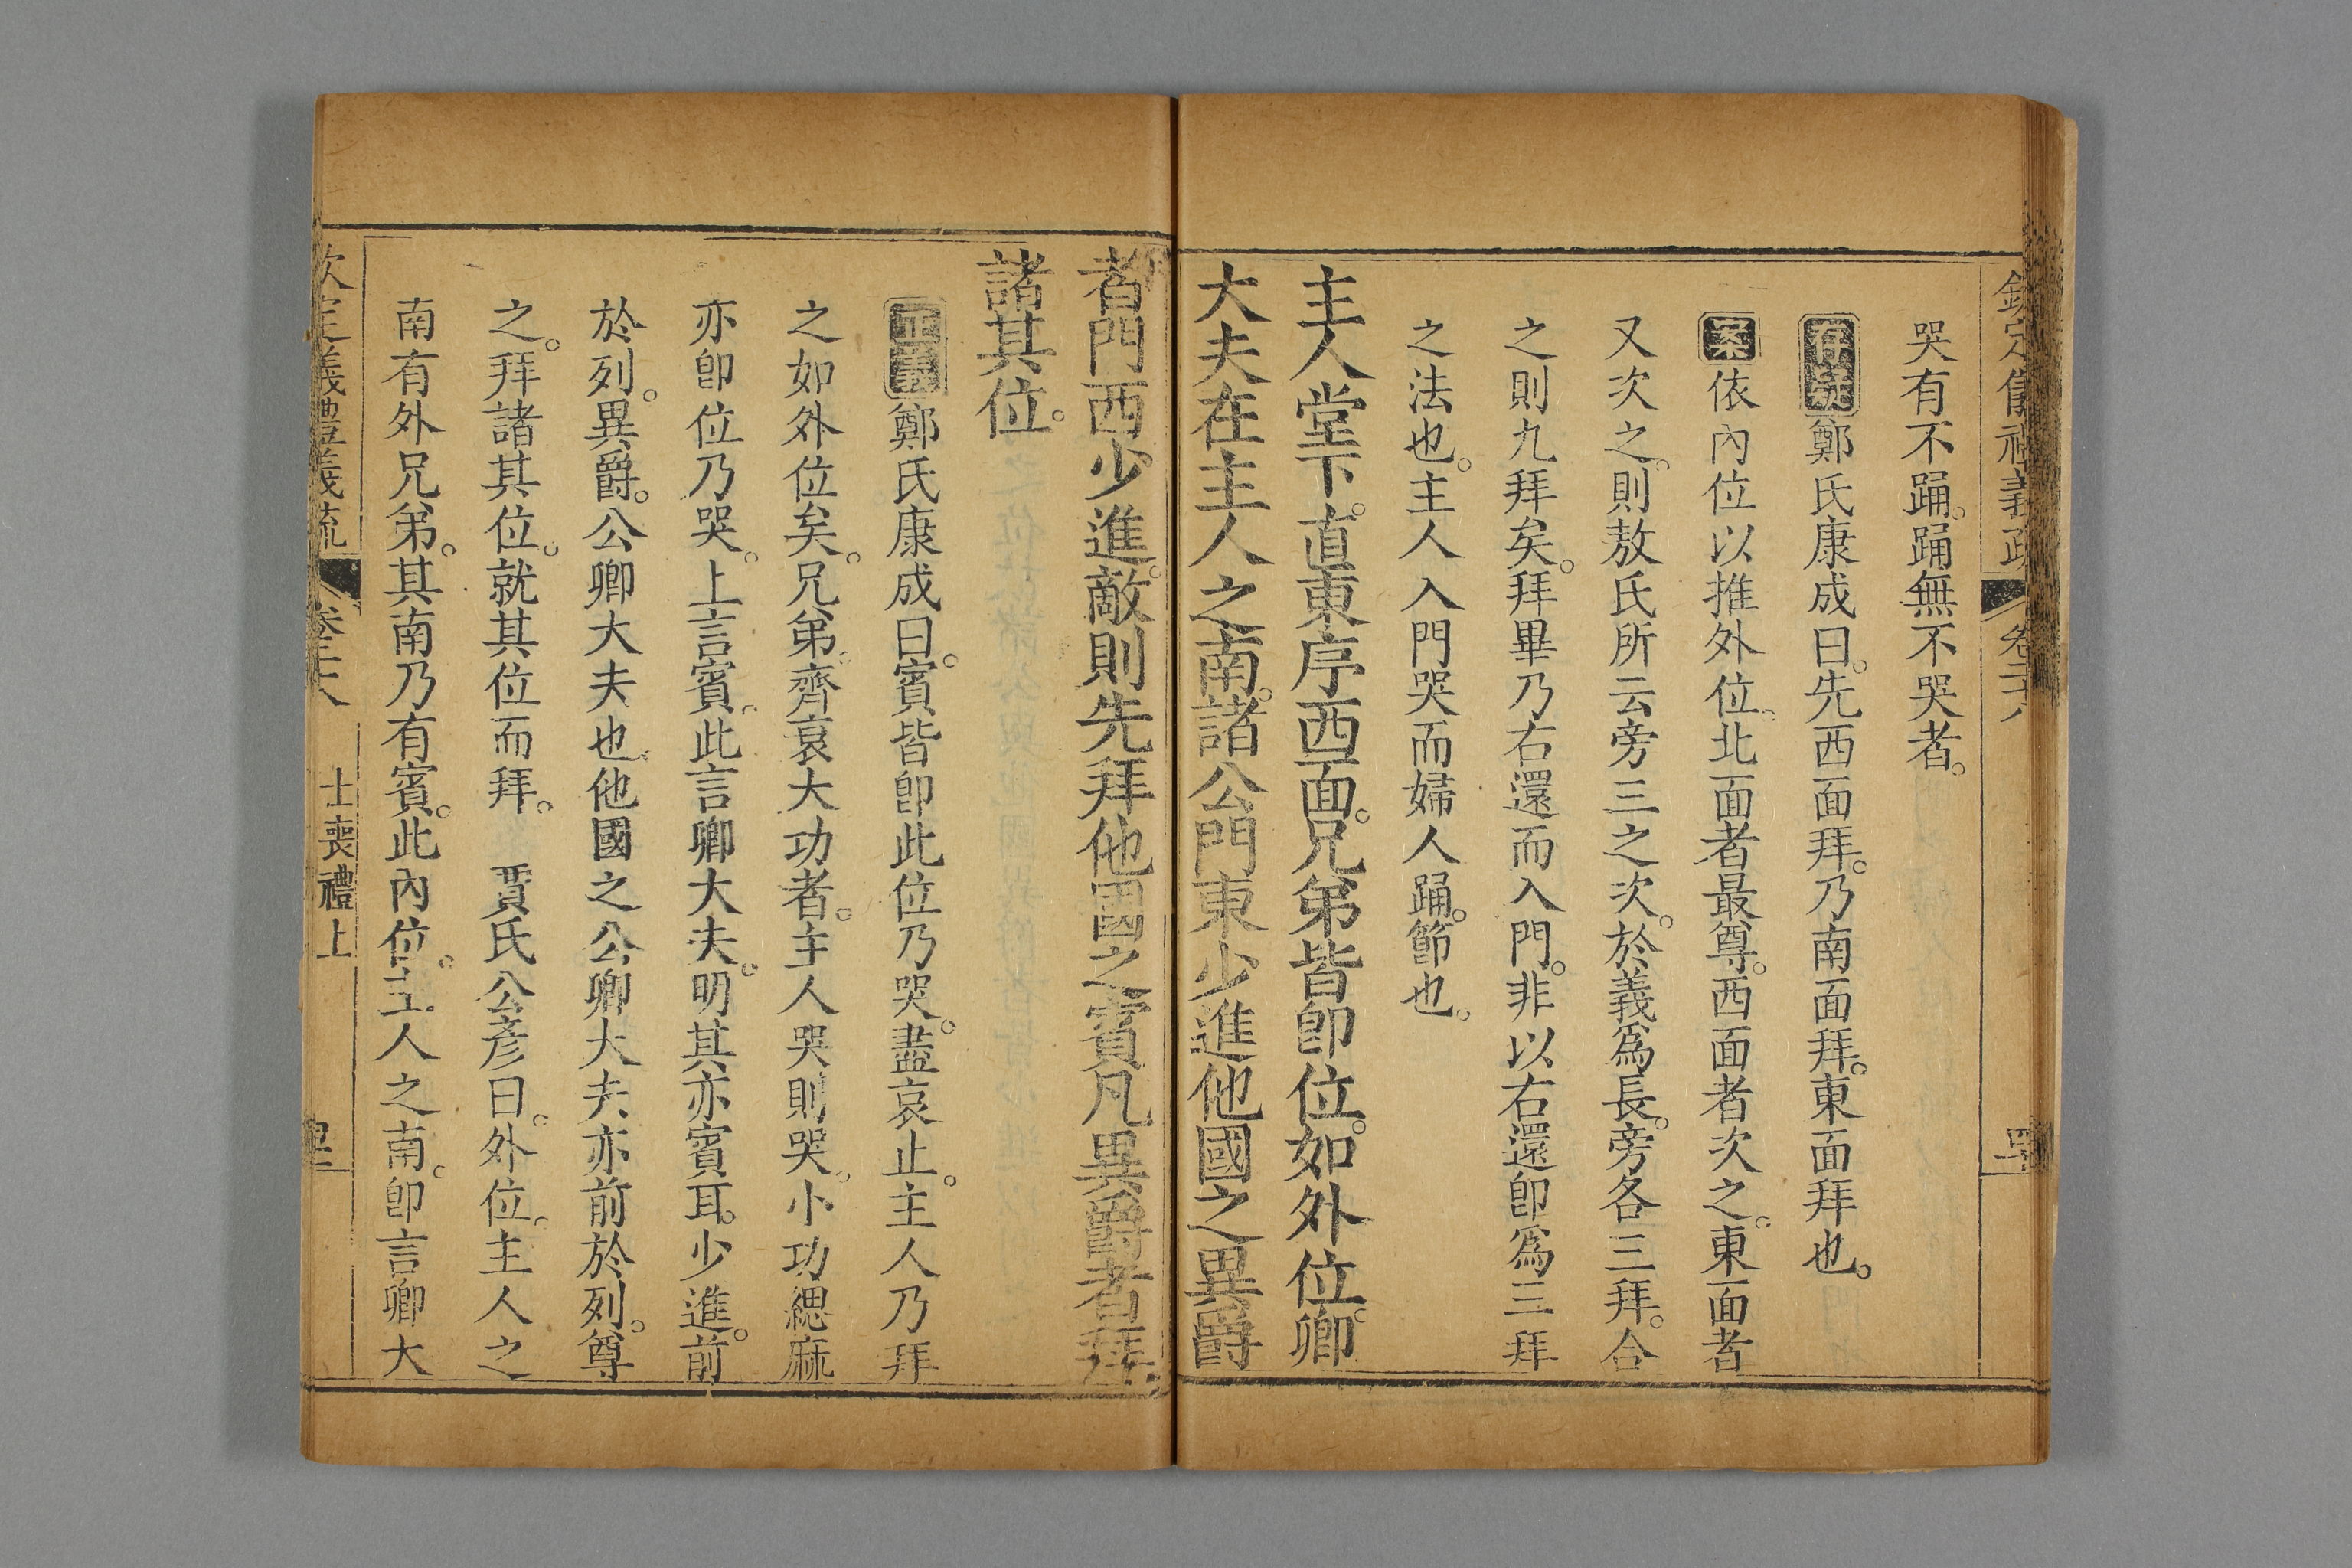 欽定儀禮義疏 卷二十八
哭有不踊。踊無不哭者。
存疑鄭氏康成曰。先西面拜。乃南面拜。東面拜也。
案依內位以推外位。北面者最尊。西面者次之。東面者
又次之。則敖氏所云旁三之次。於義爲長。旁各三拜。合
之則九拜矣。拜畢乃右還而入門。非以右還卽爲三拜
之法也。主人入門哭而婦人踊。節也。
主人堂下。直東序西面。兄弟皆卽位。如外位。卿
大夫在主人之南。諸公門東少進。他國之異爵
者門西少進。敵則先拜他國之賓。凡異爵者拜
諸其位。
正義鄭氏康成曰。賓皆卽此位乃哭。盡哀止。主人乃拜
之如外位矣。兄弟。齊衰大功者。主人哭則哭。小功緦麻
亦卽位乃哭。上言賓。此言卿大夫。明其亦賓耳。少進。前
於列。異爵。公卿大夫也。他國之公卿大夫亦前於列。尊
之。拜諸其位。就其位而拜。 賈氏公彥曰。外位。主人之
南有外兄弟。其南乃有賓。此內位。主人之南。卽言卿大
欽定義禮義疏 卷二十八 士喪禮上